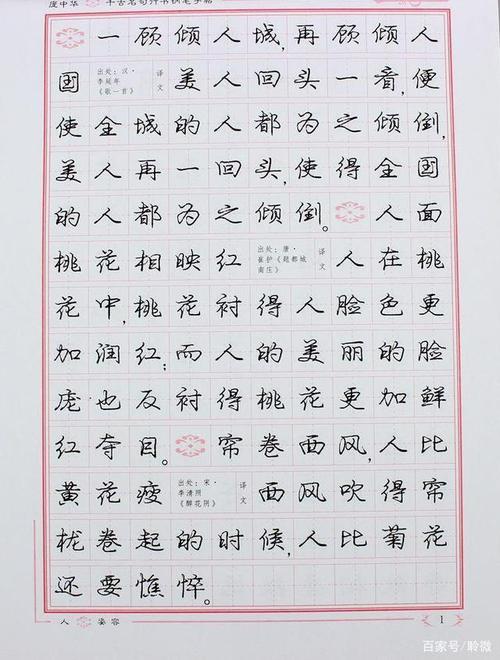 庞中华 千古名句行书钢笔字帖
一顾倾人城,再顾倾人
国 出处:汉·李延年《歌一首》 译文 美人回头一看,便
使全城的人都为之倾倒,
美人再一回头,使得全国
的人都为之倾倒。 人面
桃花相映红 出处:唐·崔护《题都城南庄》 译文 人在桃
花中,桃花衬得人脸色更
加润红;而人的美丽的脸
庞也反衬得桃花更加鲜
红夺目。 帘卷西风,人比
黄花瘦 出处:宋·李清照《醉花阴》 译文 西风吹得帘
栊卷起的时候,人比菊花
还要憔悴。
人 姿容 1
百家号/聆微